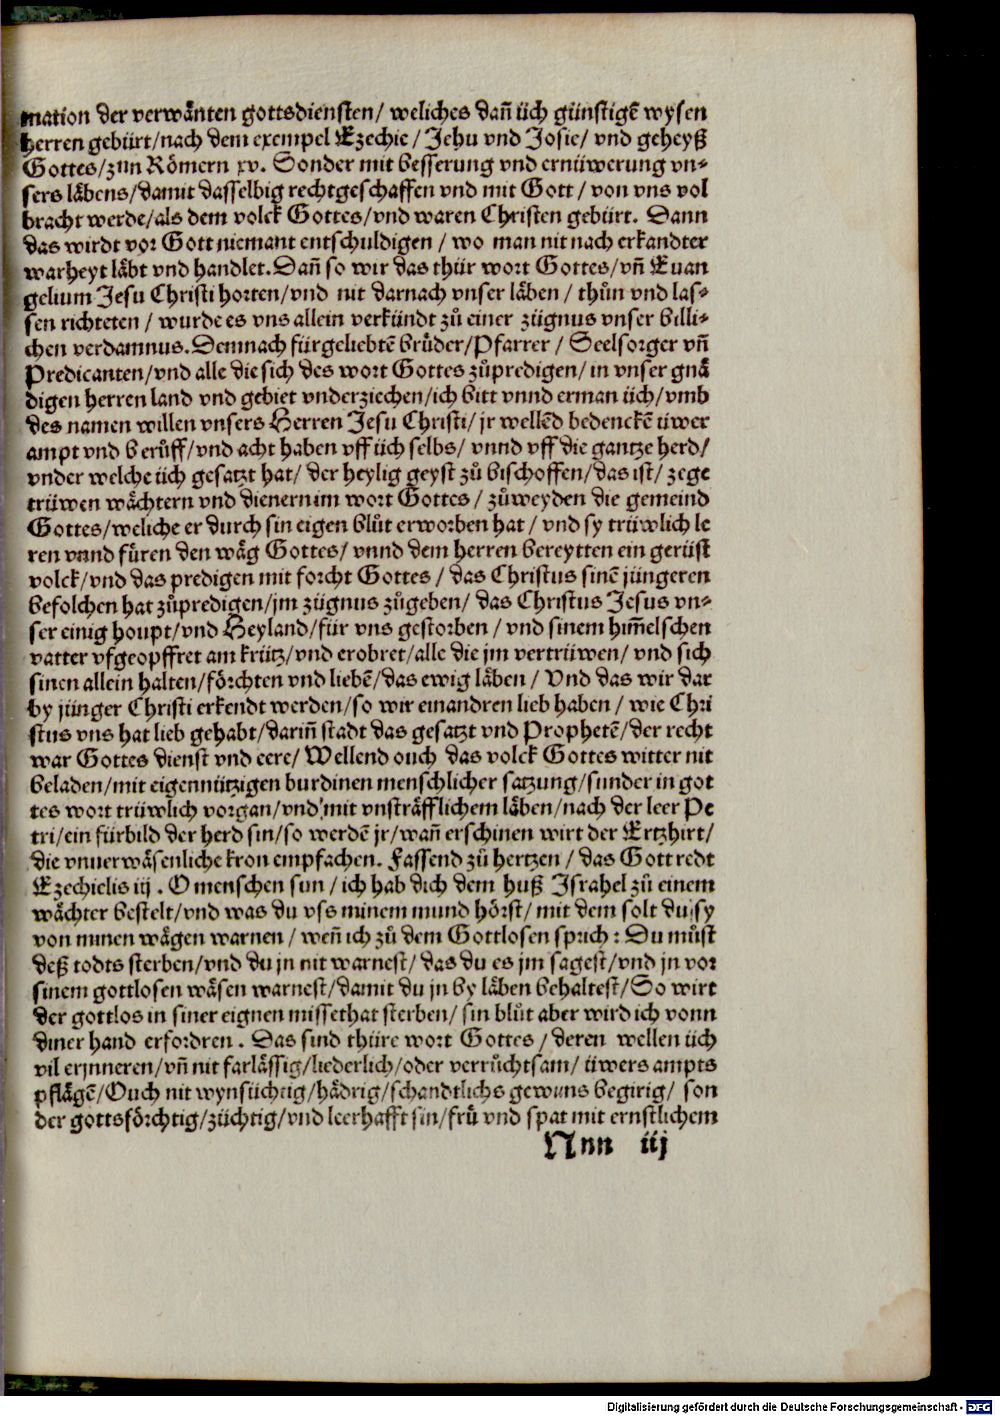 mation der verwänten gottsdiensten/ weliches dañ üch günstigē wysen
herren gebürt/nach dem exempel Ezechie/ Jehu vnd Josie/ vnd geheyß
Gottes/zun Römern xv. Sonder mit besserung vnd ernüwerung vn⸗
sers läbens/damit dasselbig rechtgeschaffen vnd mit Gott/ von vns vol
bracht werde/als dem volck Gottes/vnd waren Christen gebürt. Dann
das wirdt vor Gott niemant entschuldigen/ wo man nit nach erkandter
warheyt läbt vnd handlet. Dañ so wir das thür wort Gottes/vñ Euan
gelium Jesu Christi horten/vnd nit darnach vnser läben/ thůn vnd las⸗
sen richteten/ wurde es vns allein verkündt zů einer zügnus vnser billi⸗
chen verdamnus. Demnach fürgeliebtē brůder/Pfarrer/ Seelsorger vñ
Predicanten/vnd alle die sich des wort Gottes zůpredigen/ in vnser gnä
digen herren land vnd gebiet vnderziechen/ich bitt vnnd erman üch/vmb
des namen willen vnsers Herren Jesu Christi/ jr wellēd bedenckē üwer
ampt vnd berůff/vnd acht haben vff üch selbs/ vnnd vff die gantze herd/
vnder welche üch gesatzt hat/ der heylig geyst zů bischoffen/das ist/ zege
trüwen wächtern vnd dienern im wort Gottes/ zůweyden die gemeind
Gottes/weliche er durch sin eigen blůt erworben hat/ vnd sy trüwlich le
ren vnnd fůren den wäg Gottes/ vnnd dem herren bereytten ein gerüst
volck/vnd das predigen mit forcht Gottes/ das Christus sinē jüngeren
befolchen hat zůpredigen/jm zügnus zůgeben/ das Christus Jesus vn⸗
ser einig houpt/vnd Heyland/für vns gestorben/ vnd sinem him̃elschen
vatter vfgeopffret am krütz/vnd erobret/alle die jm vertrüwen/ vnd sich
sinen allein halten/förchten vnd liebē/das ewig läben/ Vnd das wir dar
by jünger Christi erkendt werden/so wir einandren lieb haben/ wie Chri
stus vns hat lieb gehabt/dariñ stadt das gesatzt vnd Prophetē/der recht
war Gottes dienst vnd eere/ Wellend ouch das volck Gottes witter nit
beladen/mit eigennützigen burdinen menschlicher satzung/sunder in got
tes wort trüwlich vorgan/vnd mit vnsträfflichem läben/nach der leer Pe
tri/ein fürbild der herd sin/so werdē jr/wañ erschinen wirt der Ertzhirt/
die vnuerwäsenliche kron empfachen. Fassend zů hertzen/ das Gott redt
Ezechielis iij. O menschen sun/ ich hab dich dem huß Israhel zů einem
wächter bestelt/vnd was du vss minem mund hörst/ mit dem solt du sy
von minen wägen warnen/ weñ ich zů dem Gottlosen sprich: Du můst
deß todts sterben/vnd du jn nit warnest/ das du es jm sagest/vnd jn vor
sinem gottlosen wäsen warnest/damit du jn by läben behaltest/So wirt
der gottlos in siner eignen missethat sterben/ sin blůt aber wird ich vonn
diner hand erfordren. Das sind thüre wort Gottes/ deren wellen üch
vil erjnneren/vñ nit farlässig/liederlich/oder verrůchtsam/ üwers ampts
pflägē/Ouch nit wynsüchtig/hädrig/schandtlichs gewuns begirig/ son
der gottsförchtig/züchtig/vnd leerhafft sin/frů vnd spat mit ernstlichem
Nnn iij
Digitalisierung gefördert durch die Deutsche Forschungsgemeinschaft - DFG